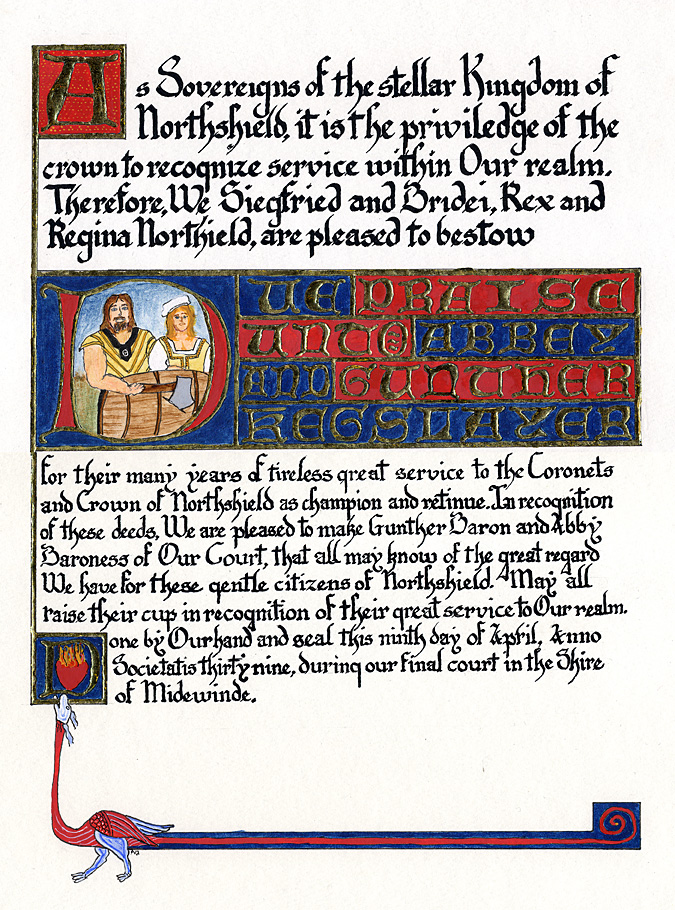 As Sovereigns of the stellar Kingdom of
Northshield, it is the priviledge of the
crown to recognize service within Our realm.
Therefore, We Siegfried and Bridei, Rex and
Regina Northield, are pleased to bestow
DUE PRAISE
UNTO ABBEY
AND GUNTHER
KEGSLAYER
for their many years of tireless great service to the Coronets
and Crown of Northshield as champion and retinue. In recognition
of these deeds, We are pleased to make Gunther Baron and Abby
Baroness of Our Court, that all may know of the great regard
We have for these gentle citizens of Northshield. May all
raise their cup in recognition of their great service to Our realm.
Done by Our hand and seal this ninth day of April, Anno
Societatis thirty nine, during our final court in the Shire
of Midewinde.